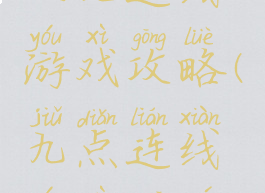 yóu xì gōng lüè
游戏攻略(
jiǔ diǎn lián xiàn
九点连线